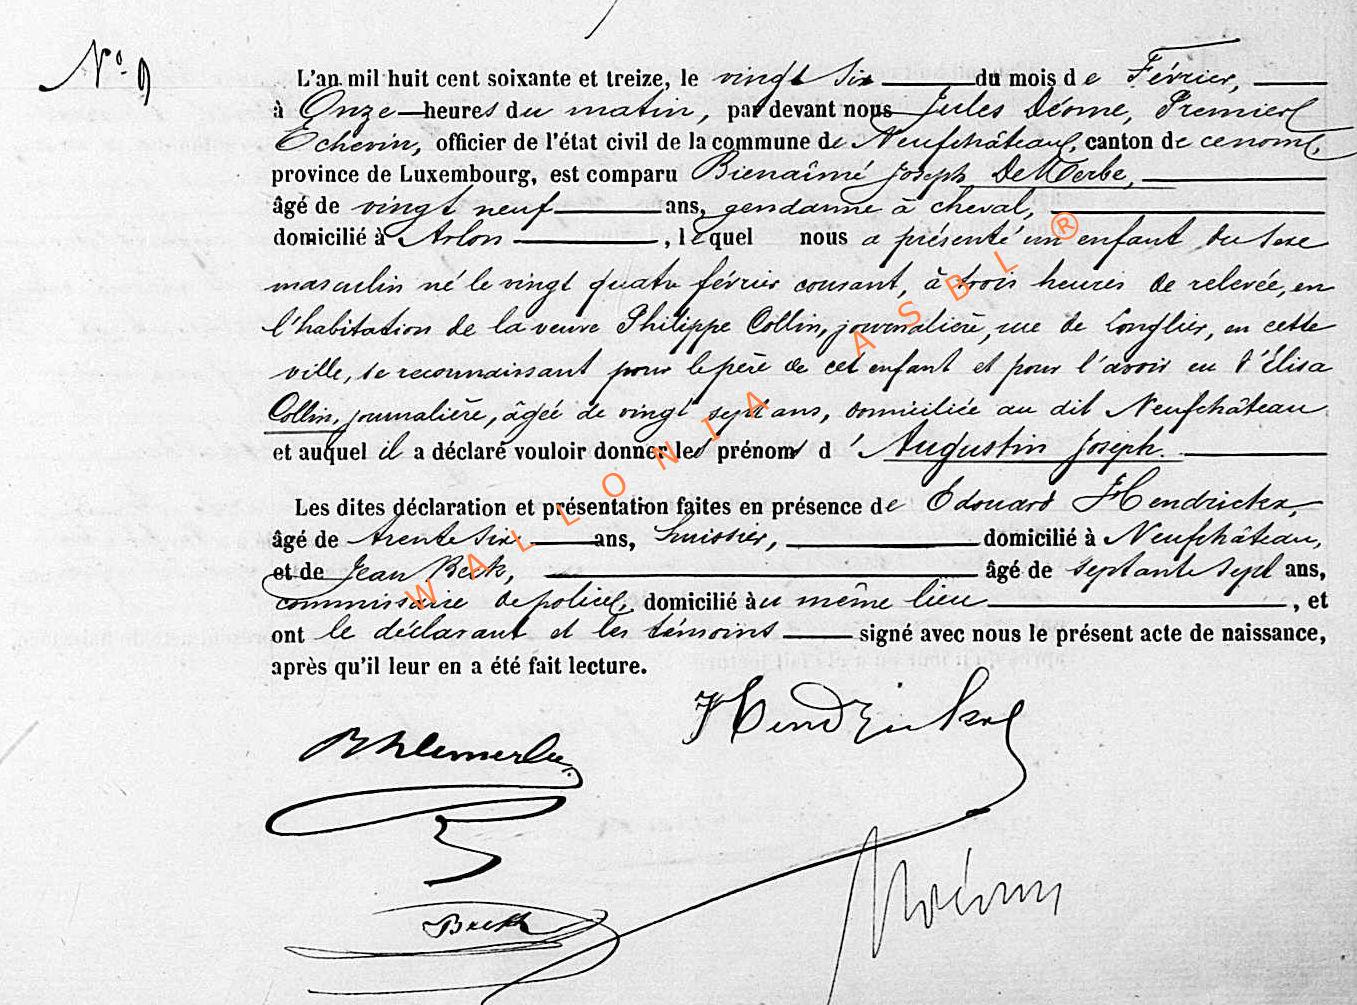 N° 9
L'an mil huit cent soixante et treize, le vingt six du mois de Février,
à Onze heures du matin, par devant nous Jules Déome, Premier
Echevin, officier de l'état civil de la commune de Neufchâteau, canton de ce nom,
province de Luxembourg, est comparu Bienaimé Joseph DeMerbe,
âgé de vingt neuf ans, gendarme à cheval,
domicilié à Arlon, lequel nous a présenté un enfant du sexe
masculin né le vingt quatre février courant, à trois heures de relevée, en
l'habitation de la veuve Philippe Collin, journalière, rue de Longlier, en cette
ville, se reconnaissant pour le père de cet enfant et pour l'avoir eu d'Élisa
Collin, journalière, âgée de vingt sept ans, domiciliée au dit Neufchâteau
et auquel il a déclaré vouloir donner les prénoms d'Augustin Joseph.
Les dites déclaration et présentation faites en présence de Edouard Hendrickx,
âgé de trente six ans, huissier, domicilié à Neufchâteau,
et de Jean Beck, âgé de septante sept ans,
commissaire de police, domicilié au même lieu, et
ont le déclarant et les témoins signé avec nous le présent acte de naissance,
après qu'il leur en a été fait lecture.
Hendrickx
Beck
WALLONIA ASBL ®